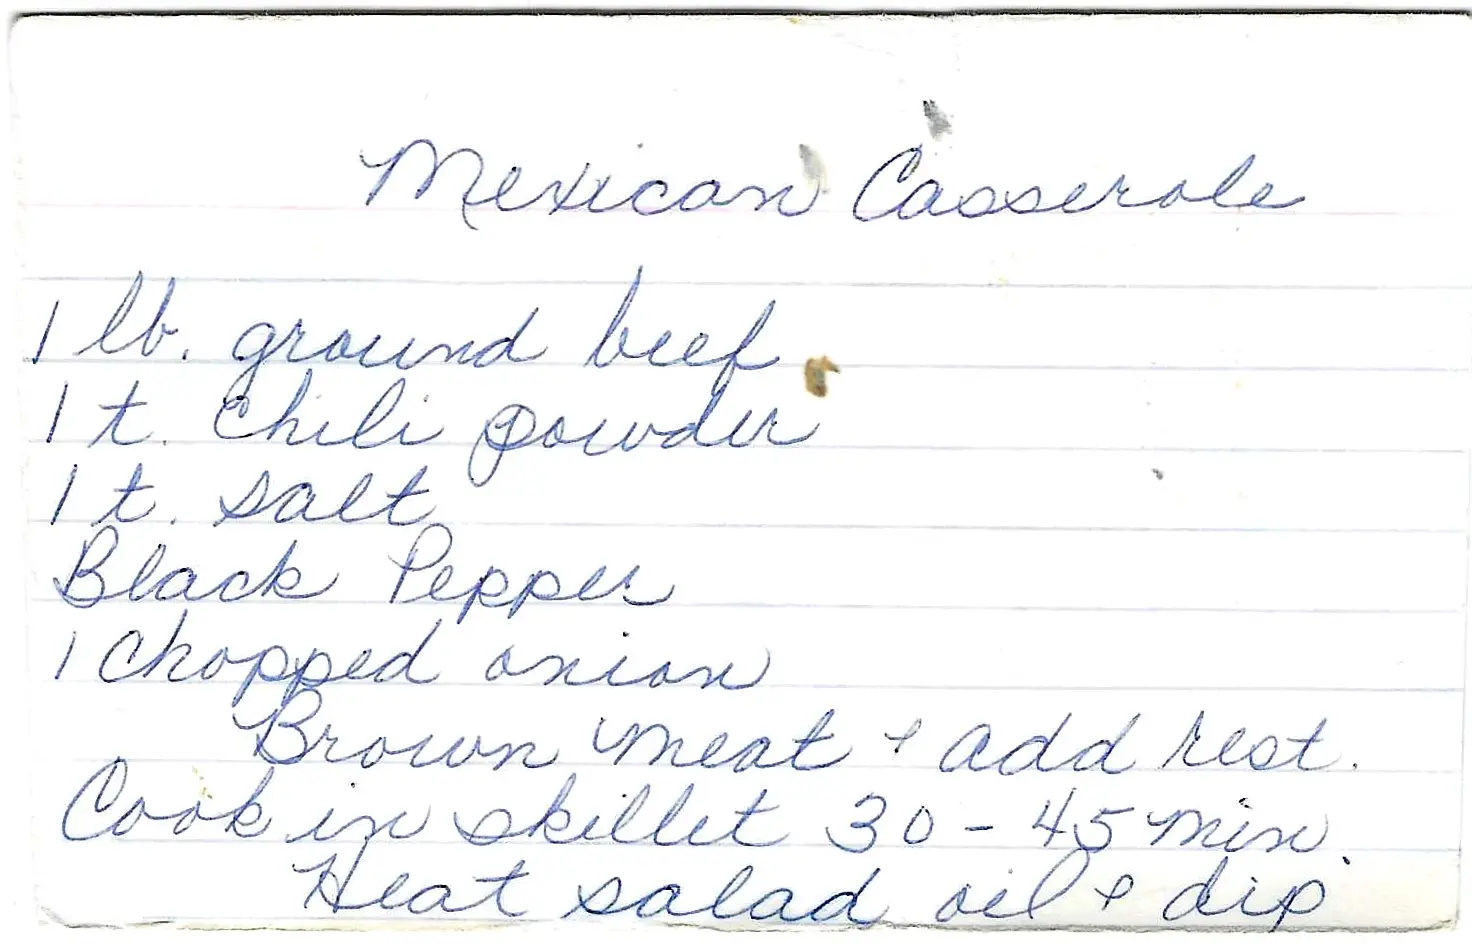 Mexican Casserole
1 lb. ground beef
1 t. Chili powder
1 t. salt
Black Pepper
1 Chopped onion
Brown meat & add rest.
Cook in skillet 30-45 min.
Heat salad oil & dip